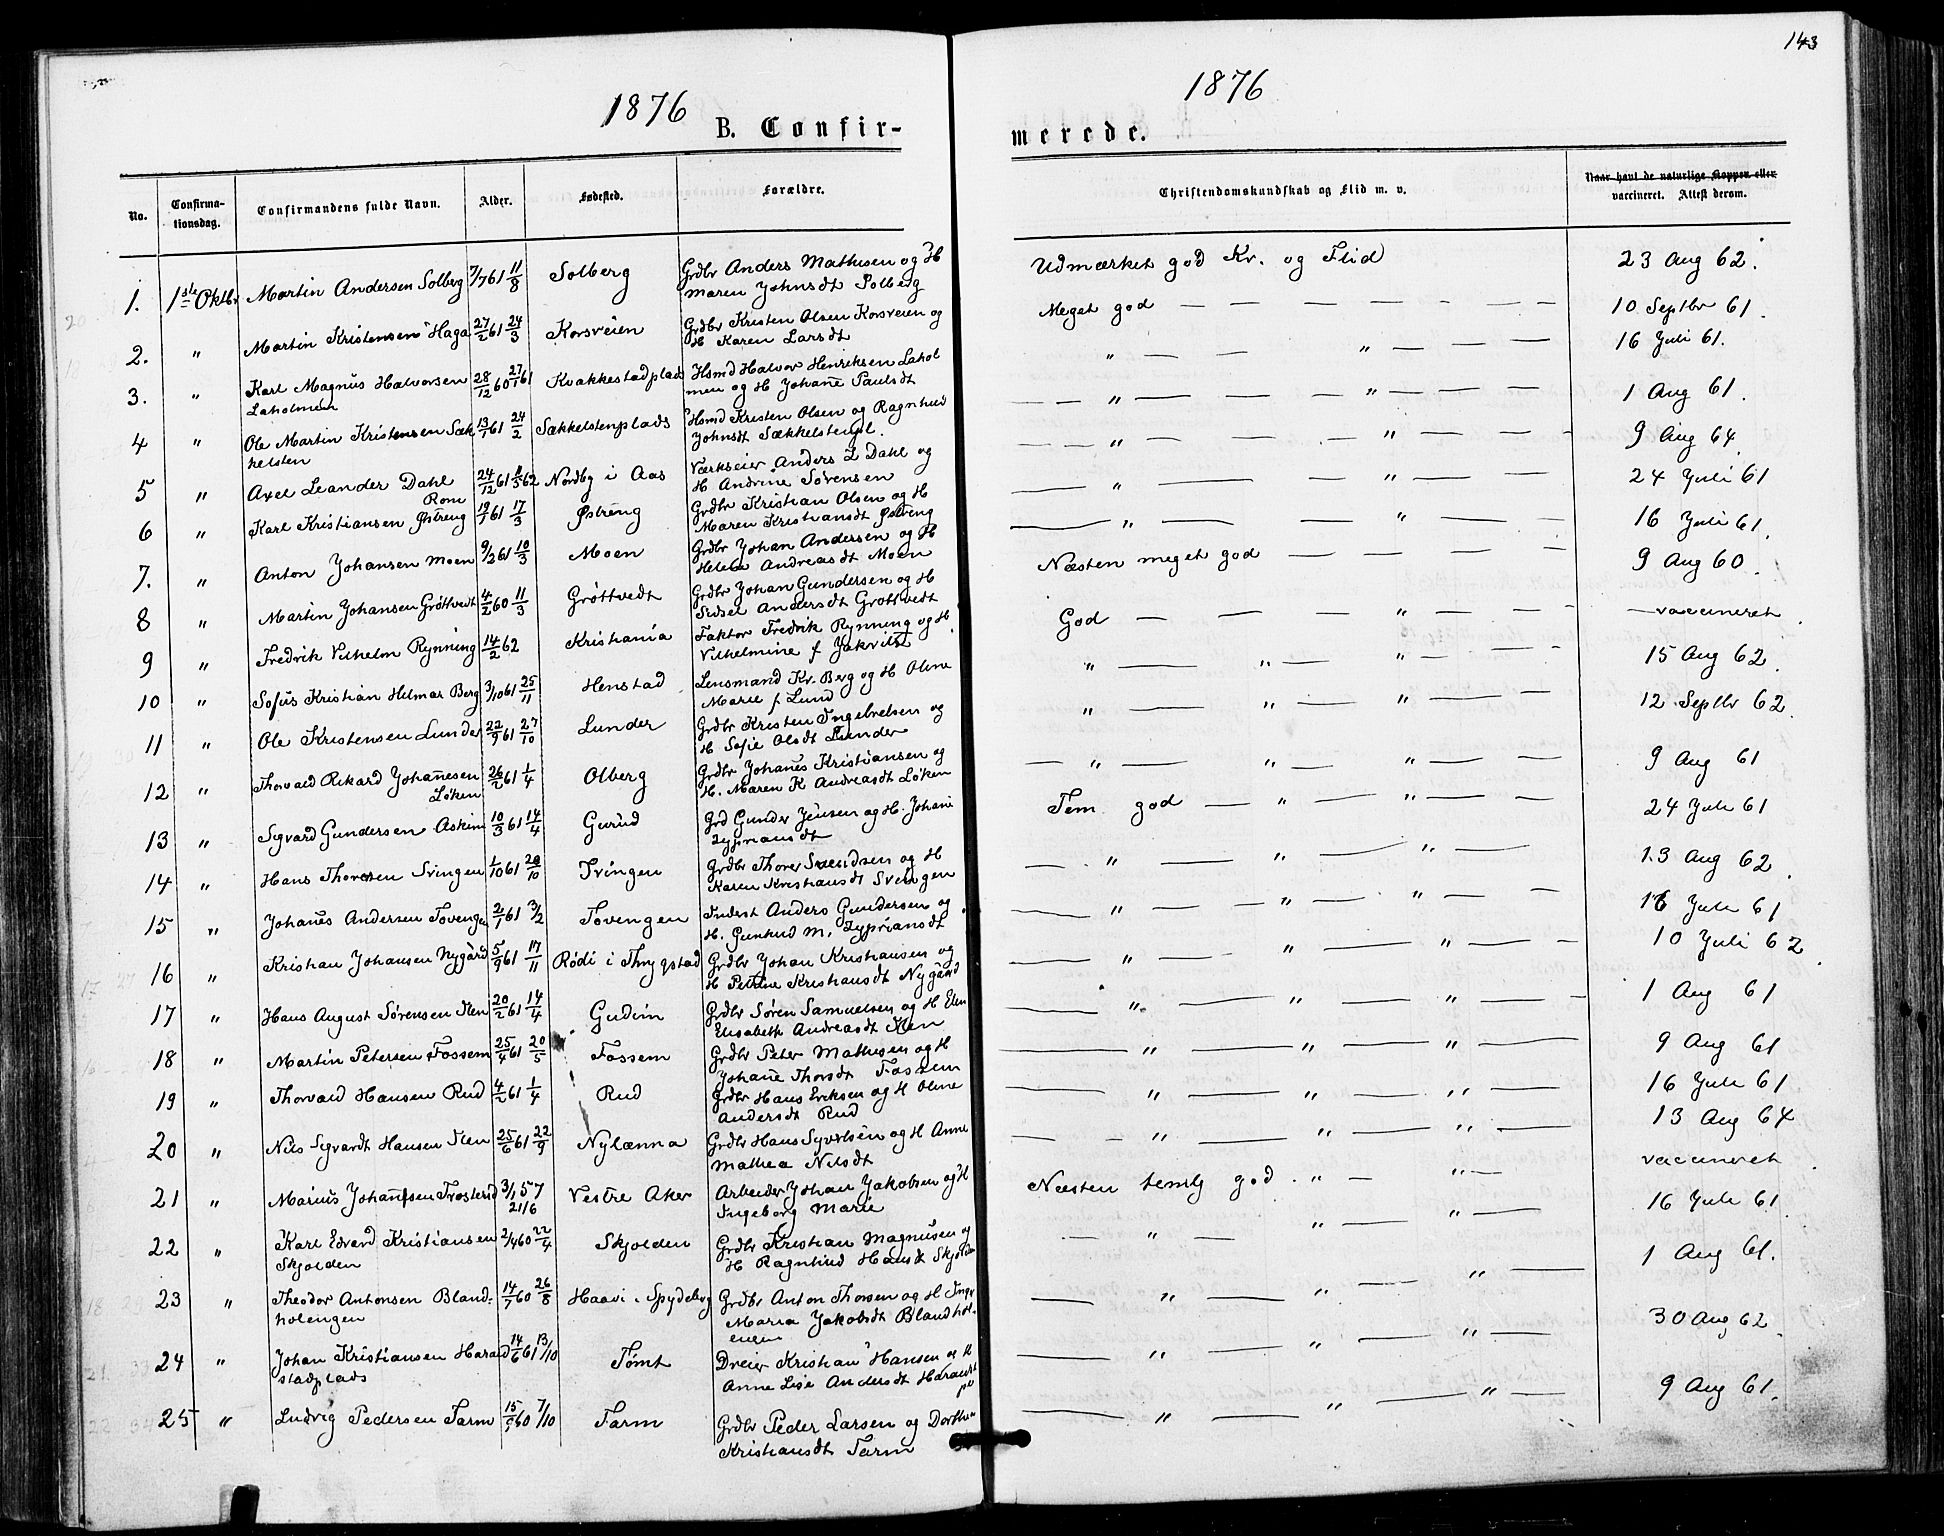 143
1876
1876
B. Confir-
merede.
No.
Confirma-
tionsdag.
Confirmandens fulde Navn.
Alder.
Fødested.
Forældre.
Christendomskundskab og Flid m. v.
Naar havt de naturlige Kopper eller
vaccineret. Attest derom.
1. 1ste Oktbr Martin Andersen Solberg 7/7 61 11/8 Solberg Grdbr Anders Mathisen og H
Maren Johnsdt Solberg
Udmærket god Kr. og Flid 23 Aug 62.
2. " Martin Kristensen Haga 27/2 61 24/3 Korsveien Grdbr Kristen Olsen Korsveien og
H Karen Larsdt
Meget god — — — — — — — 10 Septbr 61.
3. " Karl Magnus Halvorsen 28/12 60 27/1 61 Kvakkestadplads Hsmd Halvor Henriksen Lahol
Laholmen men og H Johane Paulsdt
" — — " — — — 16 Juli 61.
4 " Ole Martin Kristensen Sæk 13/1 61 24/2 Sækkelstenplads Hsmd Kristen Olsen og Ragnhild
kelsten Johnsdt Sækkelstenpl.
— — " — — — " — — — 1 Aug 61.
5 " Axel Leander Dahl 24/12 61 62 Nordby i Aas Værkseier Anders L Dahl og
H Andrine Sørensen
— — " — — — " — — — 9 Aug 64
6 " Karl Kristiansen Østreng 19/1 61 17/3 Østreng Grdbr Kristian Olsen og H
Maren Kristiansdt Østreng
— " — — " — — 24 Juli 61
7. " Anton Johansen Moen 9/2 61 10/3 Moen Grdbr Johan Andersen og H
Helene Andreasdt Moen
— " — — " — — 16 Juli 61.
8 " Martin Johansen Grøttvedt 4/2 60 11/3 Grøttvedt Grdbr Johan Gundersen og H
Sidsel Andersdt Grøttvedt
Næsten meget god — — — — — 9 Aug 60.
9 " Fredrik Vilhelm Rynning 14/2 62 Kristiania Faktor Fredrik Rynning og H
Vilhelmine f
God — — — " — — — — vaccineret.
10 " Sofus Kristian Helmar Berg 3/10 61 25/11 Henstad Lensmand Kr. Berg og H Oline
Marie f Lund
" — " — " — — — 15 Aug 62.
11 " Ole Kristensen Lunder 22/9 61 27/10 Lunder Grdbr Kristen Ingebretsen og
H Sofie Olsdt Lunder
" — " — " — — — 12 Septbr 62.
12 " Thorvald Rikard Johanesen 26/2 61 1/4 Olberg Grdbr Johanes Kristiansen og
Løken H. Maren K Andreasdt Løken
— " — " — " — — — 9 Aug 61
13 " Sigvard Gundersen Askim 10/3 61 14/4 Gurud Grd Gunder Jensen og H. Johane
Zypriansdt
Tem. god — " — " — — 24 Juli 61
14 " Hans Thoresen Svingen 1/10 61 20/10 Svingen Grdbr Thorer Svendsen og H
Karen Kristiansdt Svingen
— " — " — " — 13 Aug 62.
15 " Johanes Andersen Tovengen 2/1 61 3/2 Tovengen Inderst Anders Gundersen og
H. Gunhild M. Zypriansdt
— " — — " — " — — 16 Juli 61
16 " Kristian Johansen Nygård 5/9 61 17/11 Rødi i Thrygstad Grdbr Johan Kristiansen og
H Petrine Kristiansdt Nygård
— " — " — " — — 10 Juli 62.
17 " Hans August Sørensen Sten 20/2 61 14/4 Gudim Grdbr Søren Samuelsen og H Elen
Elisabeth Andreasdt
— " — " — " — — 1 Aug 61
18 " Martin Petersen Fossem 25/4 61 20/5 Fossem Grdbr Peter Mathisen og H
Johane Thorsdt Fossem
— " — " — " — 9 Aug 61
19 " Thorvald Hansen Rud 4/2 61 1/4 Rud Grdbr Hans Eriksen og H Oline
Andersdt Rud
— " — " — " — 16 Juli 61
20 " Nils Sigvardt Hansen Sten 25/6 61 22/9 Nylænna Grdbr Hans Syvertsen og H Anne
Mathea Nilsdt
— — " — " — " — 13 Aug 64
21 " Marius Johannesen 3/1 57 21/6 Vestre Aker Arbeider Johan Jakobsen og H
Ingeborg Marie
Næsten temlg god. " — " — vaccineret.
22 " Karl Edvard Kristiansen 2/4 60 22/4 Skjolden Grdbr Kristian Magnusen og
Skjolden H Ragnhild Hansdt Skjolden
— " — " — " — 16 Juli 61.
23 " Theodor Antonsen Bland- 14/7 60 26/8 Haavi i Spydeberg Grdbr Anton Thorsen og H Ingr
holengen Maria Jakobsdt Blandhol-
engen
— " — " " — 1 Aug 61.
24 " Johan Kristiansen Harald 14/6 61 13/10 Tømt Dreier Kristian Hansen og H
stadplads Anne Lise Andersdt
— " — " — " — 30 Aug 62.
25 " Ludvig Pedersen Farm 60 7/10 Farm Grdbr Peder Larsen og Dorthe
Kristiansdt Farm
— " — " — " — 9 Aug 61.